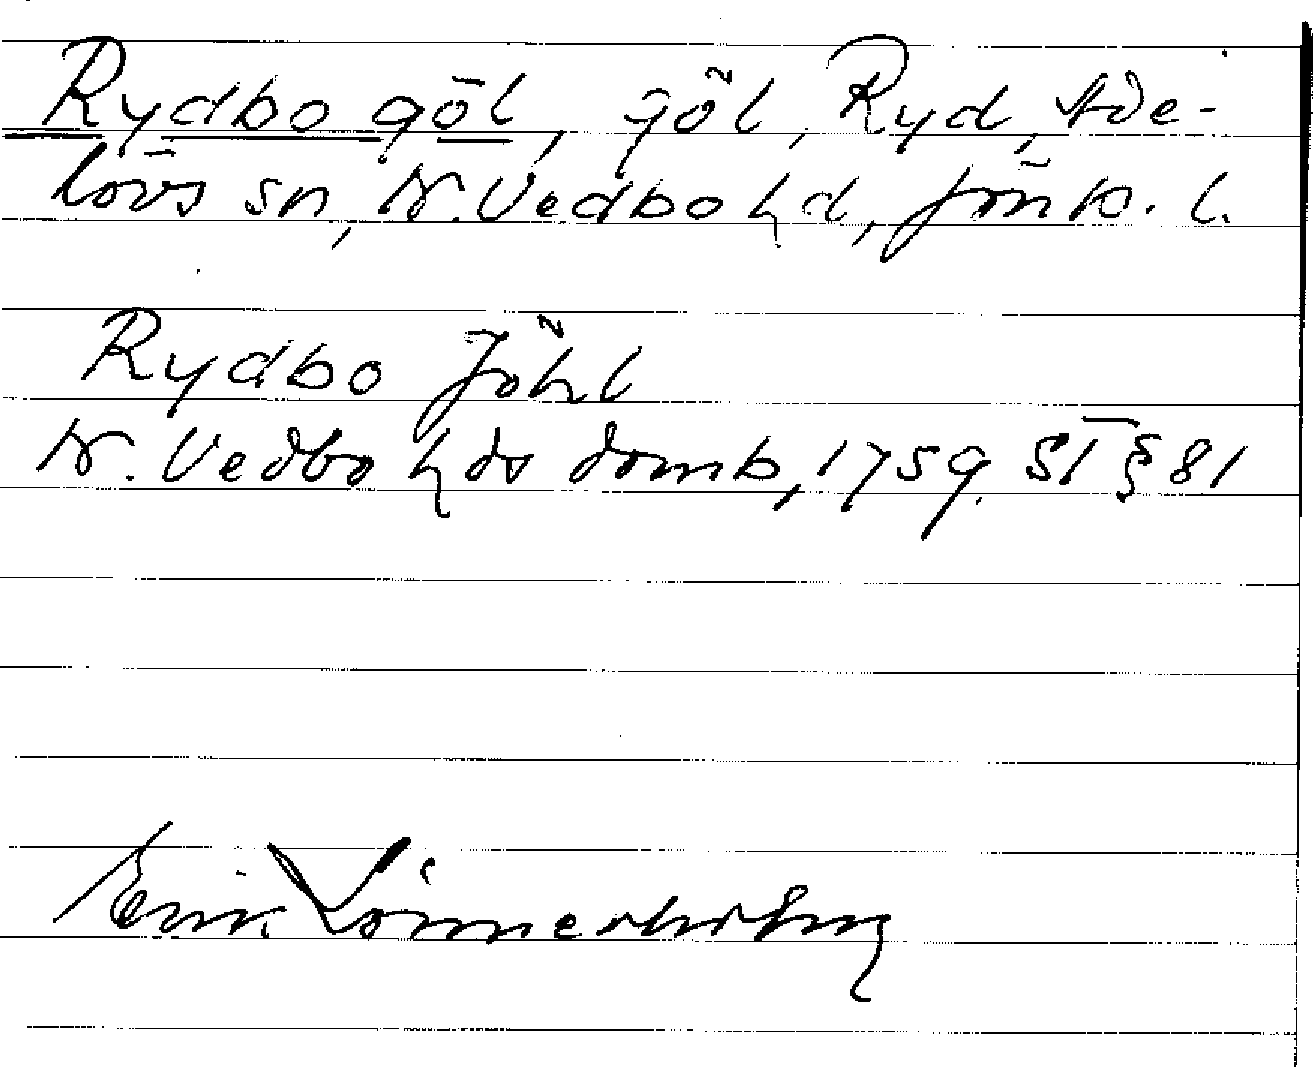 Rydbo göl, göl, Ryd, Ade-
lövs sn, N. Vedbo hd, Jönk. l.
Rydbo Jöhl
N. Vedbo hds domb, 1759. ST § 81
Erik Lönnerholm